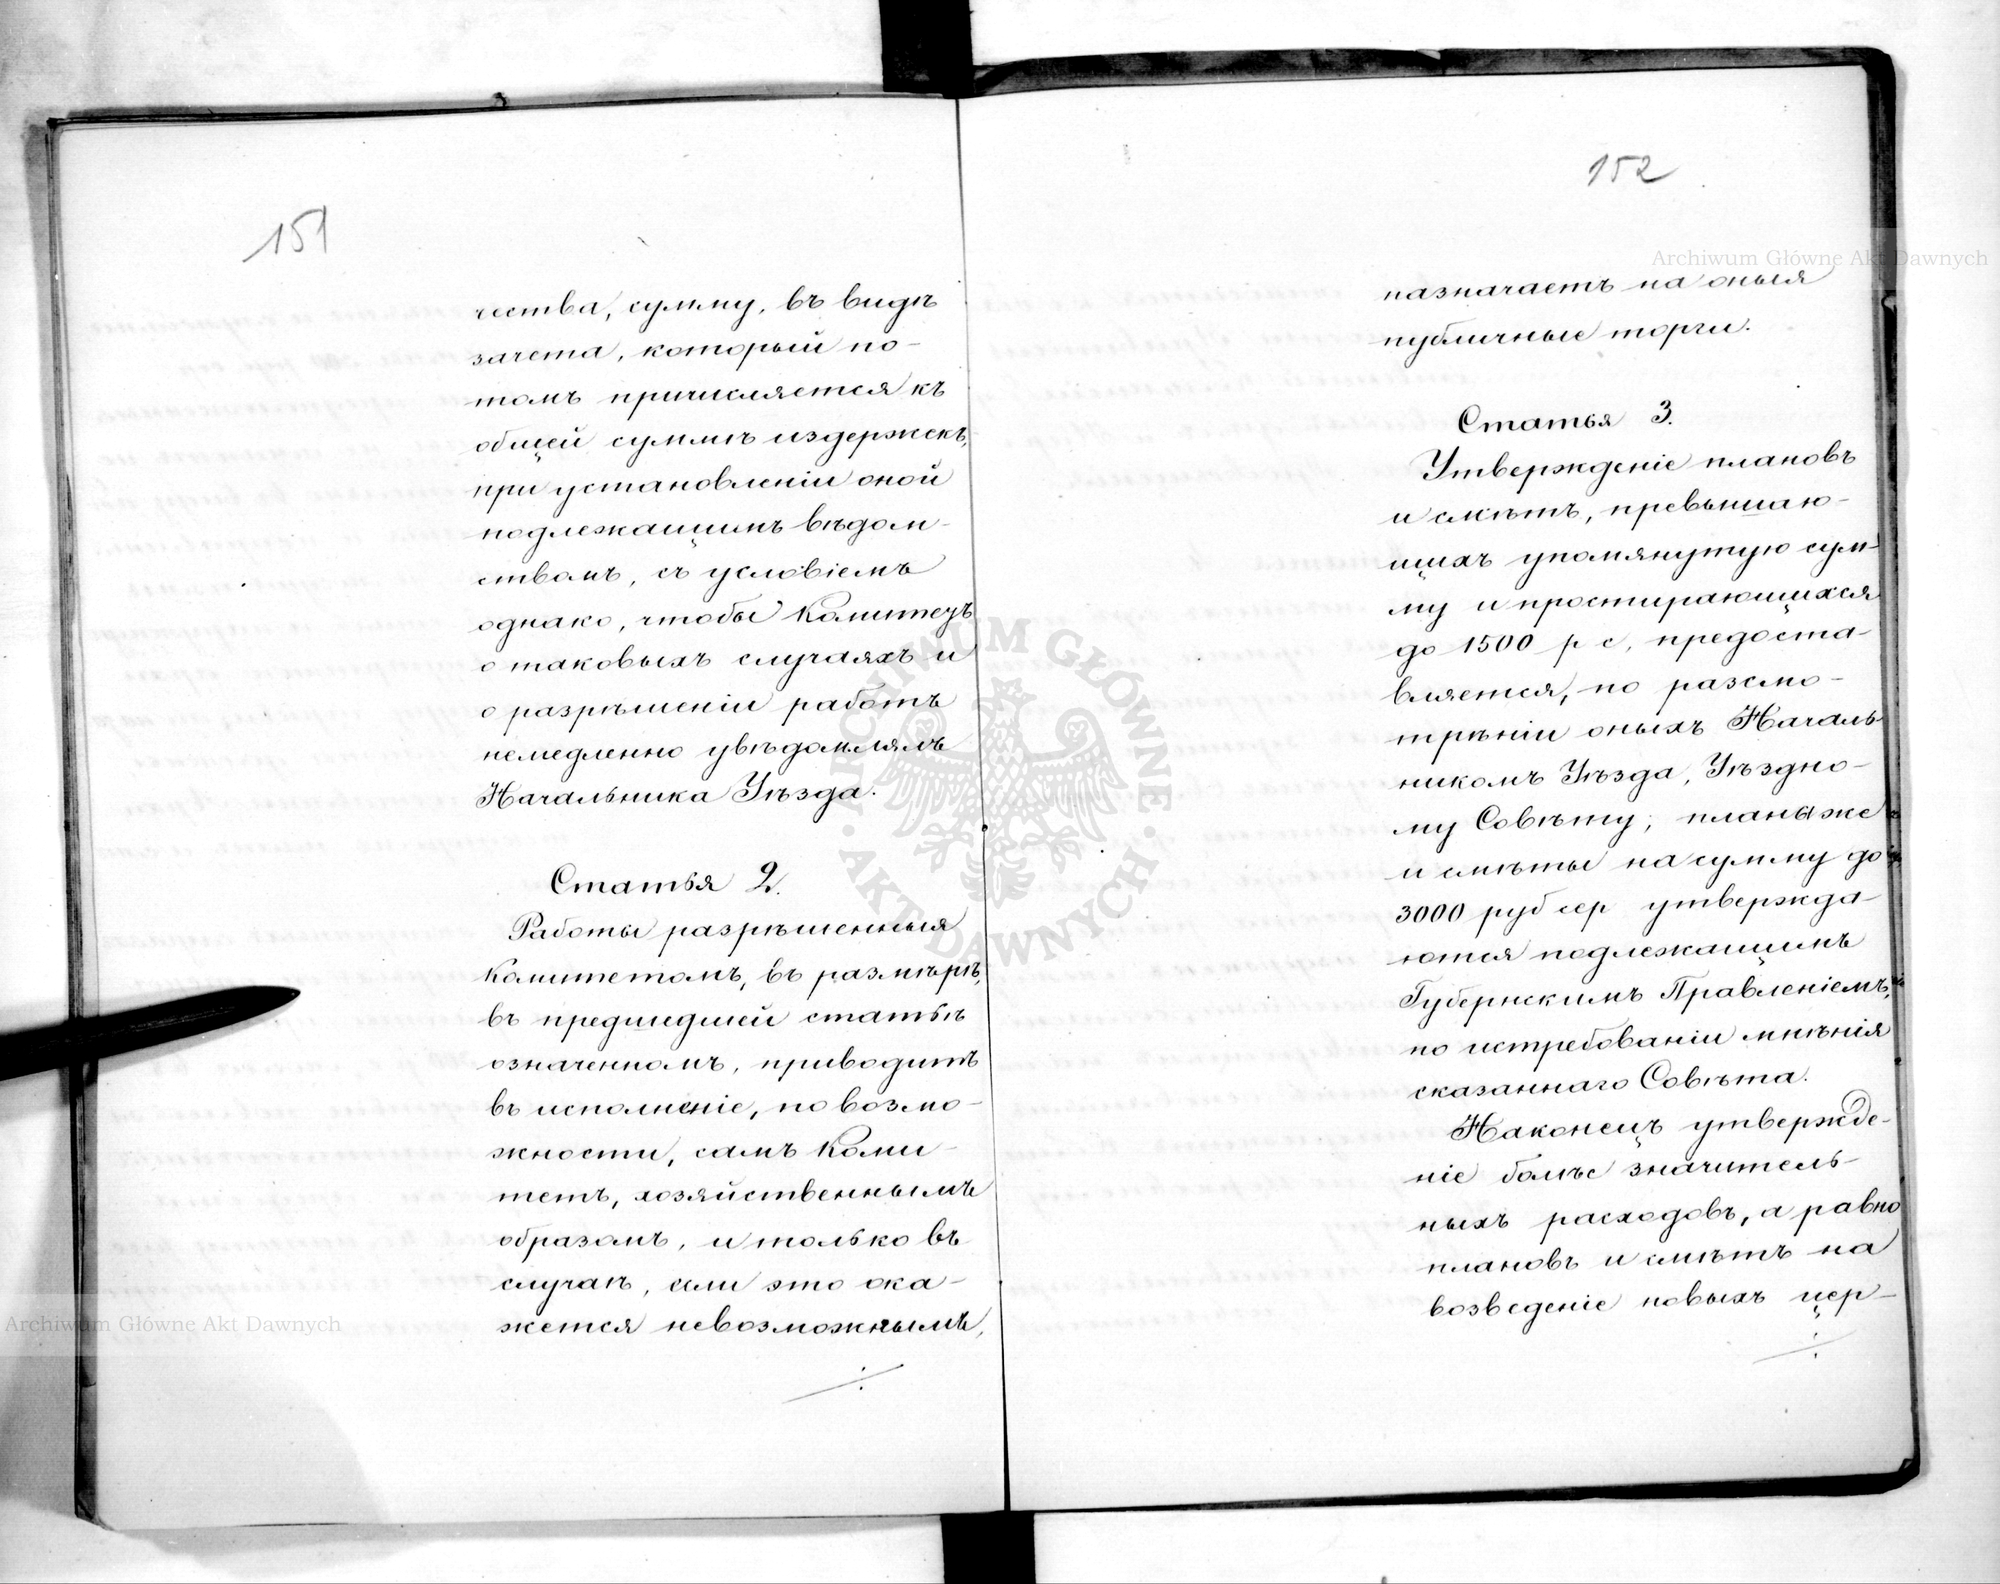 151
чества, сумму, въ видѣ
зачета, который по-
томъ причисляется къ
общей суммѣ издержекъ,
при установленіи оной
подлежащимъ вѣдом-
ствомъ, съ условіемъ
однако, чтобы Комитетъ
о таковыхъ случаяхъ и
о разрѣшеніи работъ
немедленно увѣдомлялъ
Начальника Уѣзда.
Статья 2.
Работы разрѣшенныя
Комитетомъ, въ размѣрѣ,
въ предшедшей статьѣ
означенномъ, приводитъ
въ исполненіе, по возмо-
жности, самъ Коми-
тетъ, хозяйственнымъ
образомъ, и только въ
случаѣ, если это ока-
жется невозможнымъ,
152
назначаетъ на оныя
публичные торги.
Статья 3.
Утвержденіе плановъ
и смѣтъ, превышаю-
щихъ упомянутую сум-
му и простирающихся
до 1500 р с, предоста-
вляется, по разсмо-
трѣніи оныхъ Началь-
никомъ Уѣзда, Уѣздно-
му Совѣту; планы же
и смѣты на сумму до
3000 руб сер утвержда-
ются подлежащимъ
Губернскимъ Правленіемъ,
по истребованіи мнѣнія
сказаннаго Совѣта.
Наконецъ утвержде-
ніе болѣе значитель-
ныхъ расходовъ, а равно
плановъ и смѣтъ на
возведеніе новыхъ цер-
Archiwum Główne Akt Dawnych
Archiwum Główne Akt Dawnych
ARCHIWUM GŁÓWNE AKT DAWNYCH